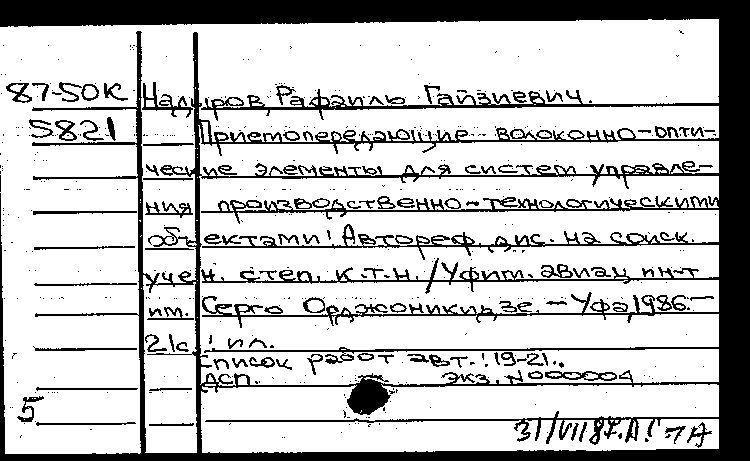 87-50К Надыров, Рафаиль Гайзиевич.
5821 Приемопередающие волоконно-опти-
ческие элементы для систем управле-
ния производственно-технологическими
объектами: Автореф. дис. на соиск.
учен. степ. к.т.н. / Уфим. авиац. ин-т
им. Серго Орджоникидзе. - Уфа, 1986. -
21с.: ил.
Список работ авт.: 19-21.
ДСП. Экз. N000004
5
31/VII 87. А!